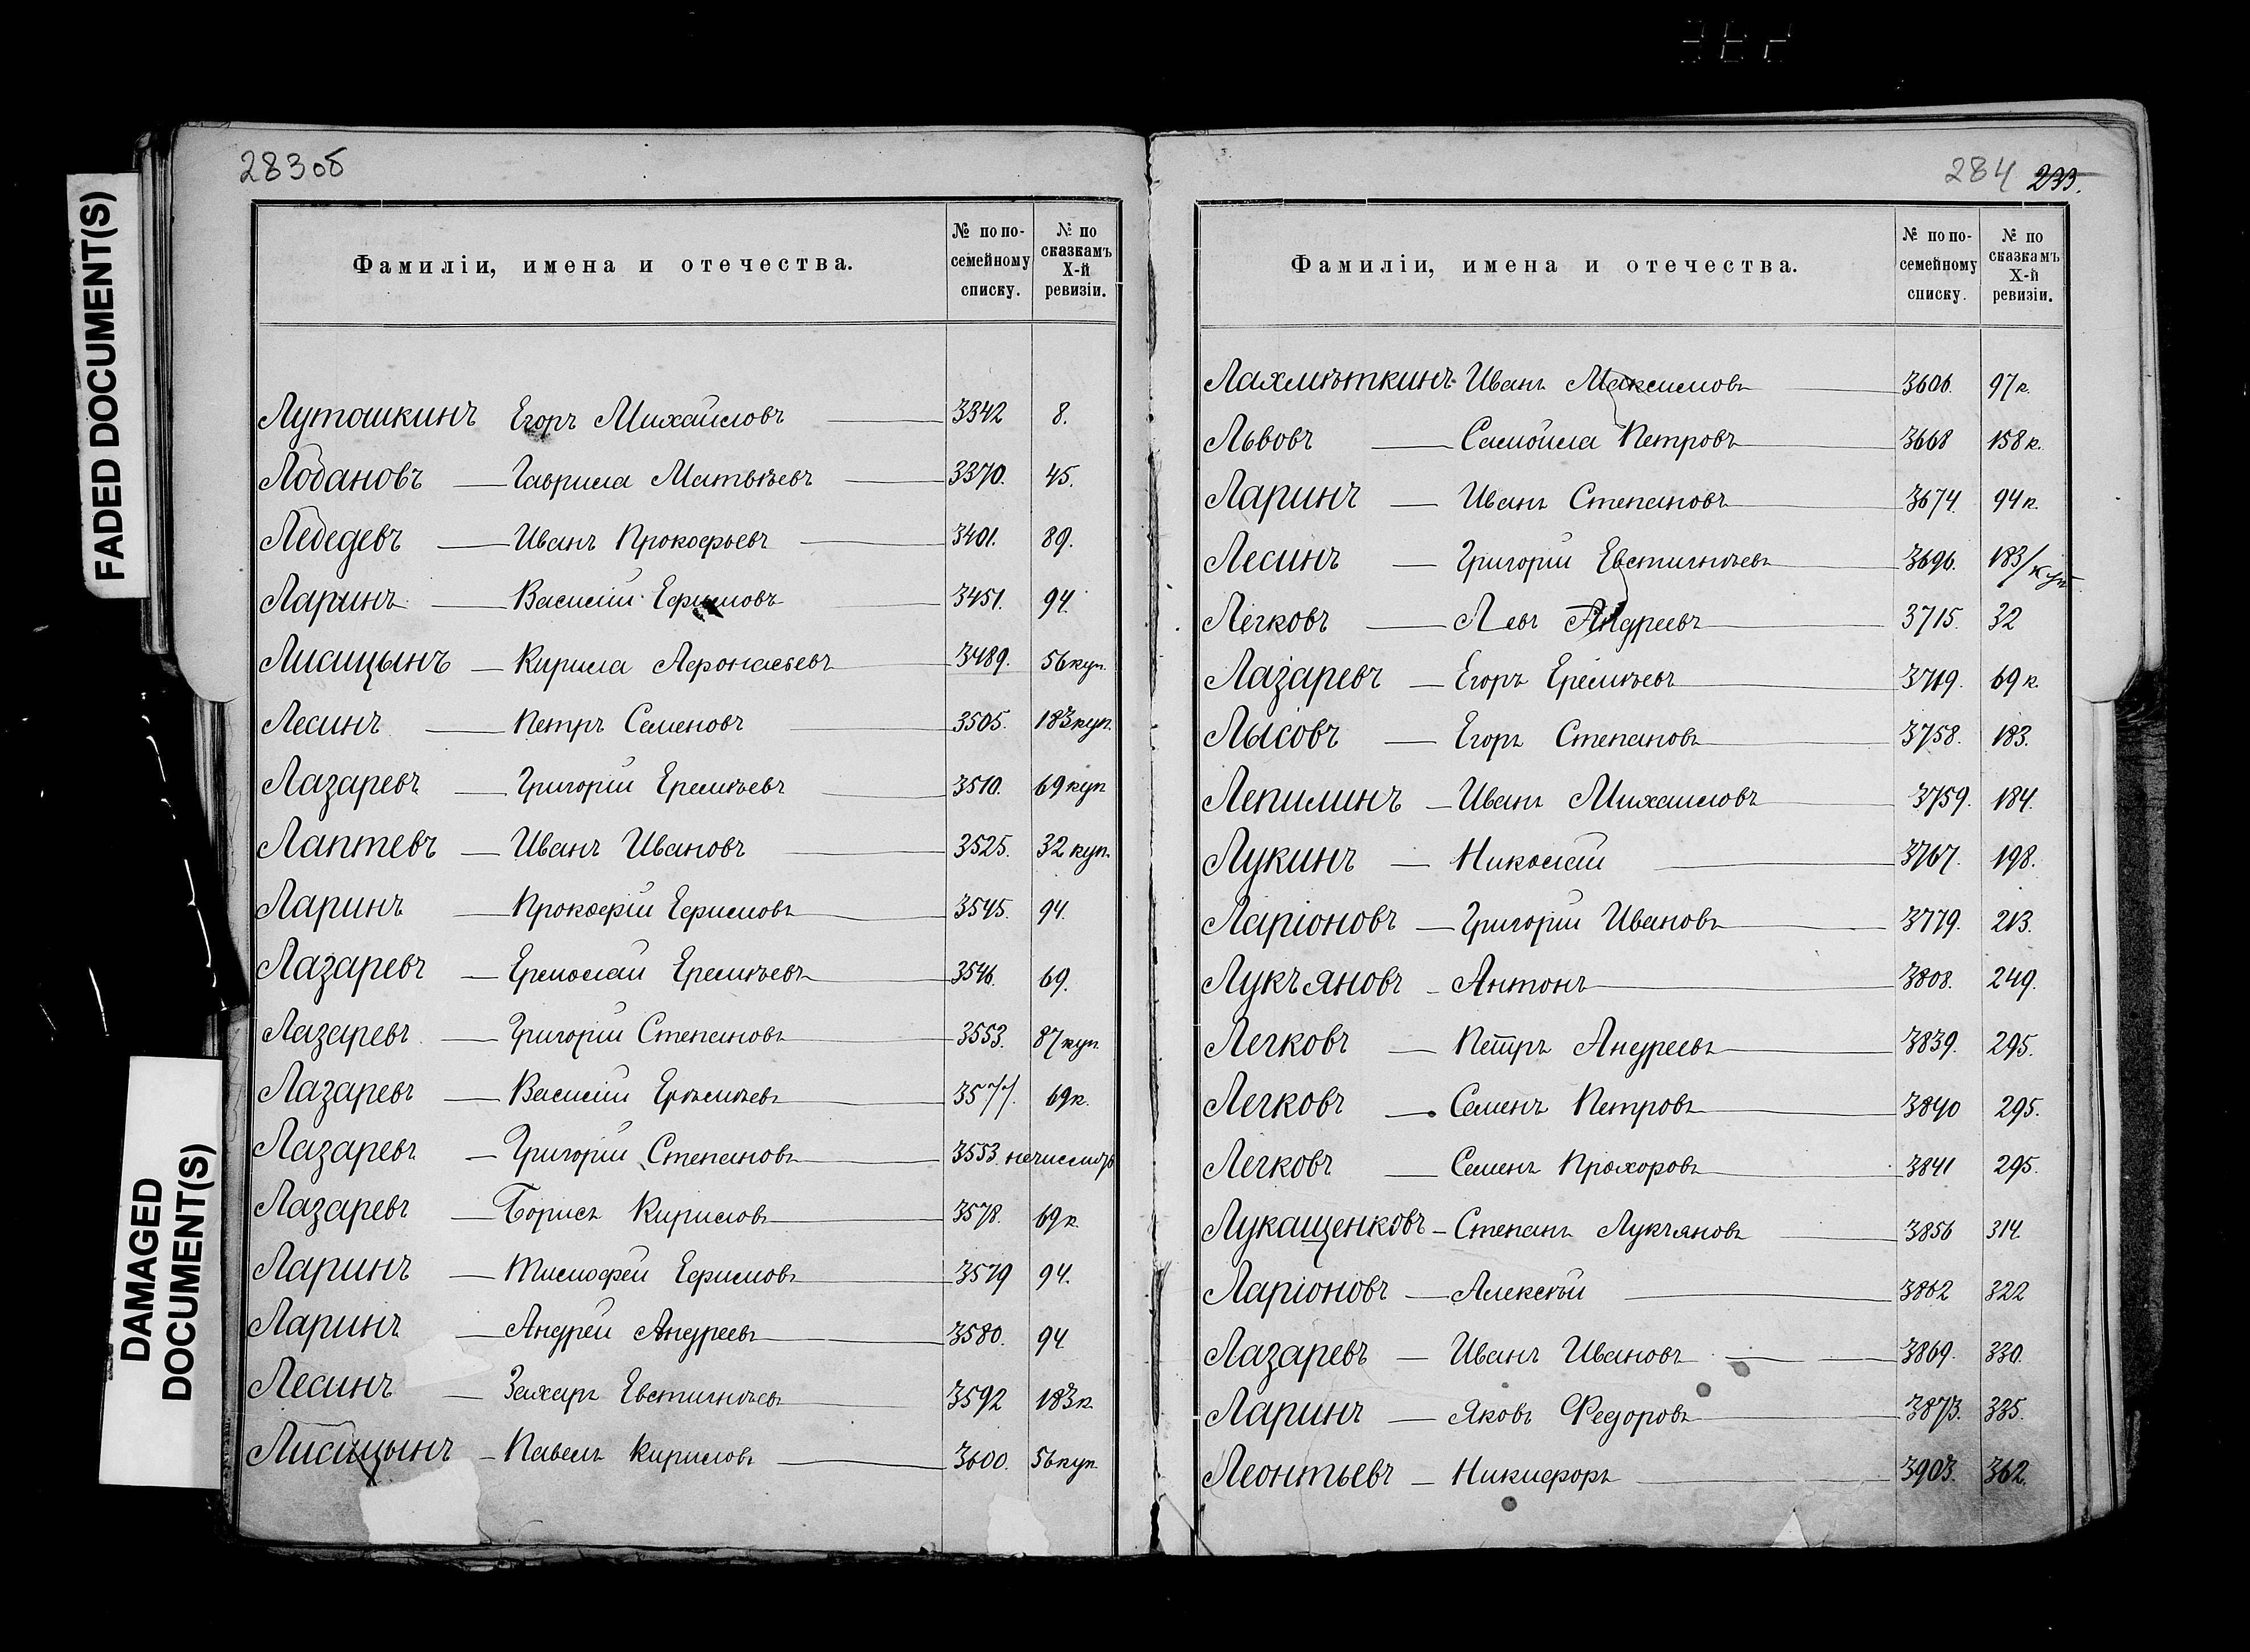 283об
FADED DOCUMENT(S)
DAMAGED DOCUMENT(S)
Фамиліи, имена и отечества. № по посемейному списку. № по сказкамъ X-й ревизіи.
Лутошкинъ Егоръ Михайловъ 3342 8.
Лобановъ — Гаврила Матвѣевъ 3370. 45.
Лебедевъ — Иванъ Прокофьевъ 3401. 89.
Ларинъ — Василій Ефимовъ 3451. 94.
Лисицынъ — Кирила Афонасьевъ 3489. 56 куп.
Лесинъ — Петръ Семеновъ 3505. 183 куп.
Лазаревъ — Григорій Еремѣевъ 3510. 69 куп
Лаптевъ — Иванъ Ивановъ 3525. 32 куп.
Ларинъ — Прокофій Ефимовъ 3545. 94.
Лазаревъ — Ермолай Еремѣевъ 3546. 69.
Лазаревъ — Григорій Степановъ 3553. 87 куп.
Лазаревъ — Василій Ерѣмѣевъ 3577. 69 к.
Лазаревъ — Григорій Степановъ 3553.
Лазаревъ — Борисъ Кириловъ 3578. 69 к.
Ларинъ — Тимофей Ефимовъ 3579 94.
Ларинъ — Андрей Андреевъ 3580. 94
Лесинъ — Захаръ Евстигнѣевъ 3592 183 к.
Лисицынъ — Павелъ Кириловъ 3600. 56 куп.
284 233.
Фамиліи, имена и отечества. № по посемейному списку. № по сказкамъ X-й ревизіи.
Лахмѣткинъ Иванъ Максимовъ 3606. 97 к.
Львовъ — Самойла Петровъ 3668 158 к.
Ларинъ — Иванъ Степановъ 3674. 94 к.
Лесинъ — Григорій Евстигнѣевъ 3696. 183/куп.
Легковъ — Левъ Андреевъ 3715. 32
Лазаревъ — Егоръ Еремѣевъ 3719. 69 к.
Лысовъ — Егоръ Степановъ 3758. 183.
Лепилинъ — Иванъ Михаиловъ 3759. 184.
Лукинъ — Николай 3767. 198.
Ларіоновъ — Григорій Ивановъ 3779. 213.
Лукъяновъ — Антонъ 3808. 249.
Легковъ — Петръ Андреевъ 3839. 295.
Легковъ — Семенъ Петровъ 3840 295.
Легковъ — Семенъ Прохоровъ 3841 295.
Лукащенковъ — Степанъ Лукъяновъ 3856 314.
Ларіоновъ — Алексѣй 3862 322
Лазаревъ — Иванъ Ивановъ 3869. 330.
Ларинъ — Яковъ Федоровъ 3873. 335.
Леонтьевъ — Никифоръ 3903. 362.